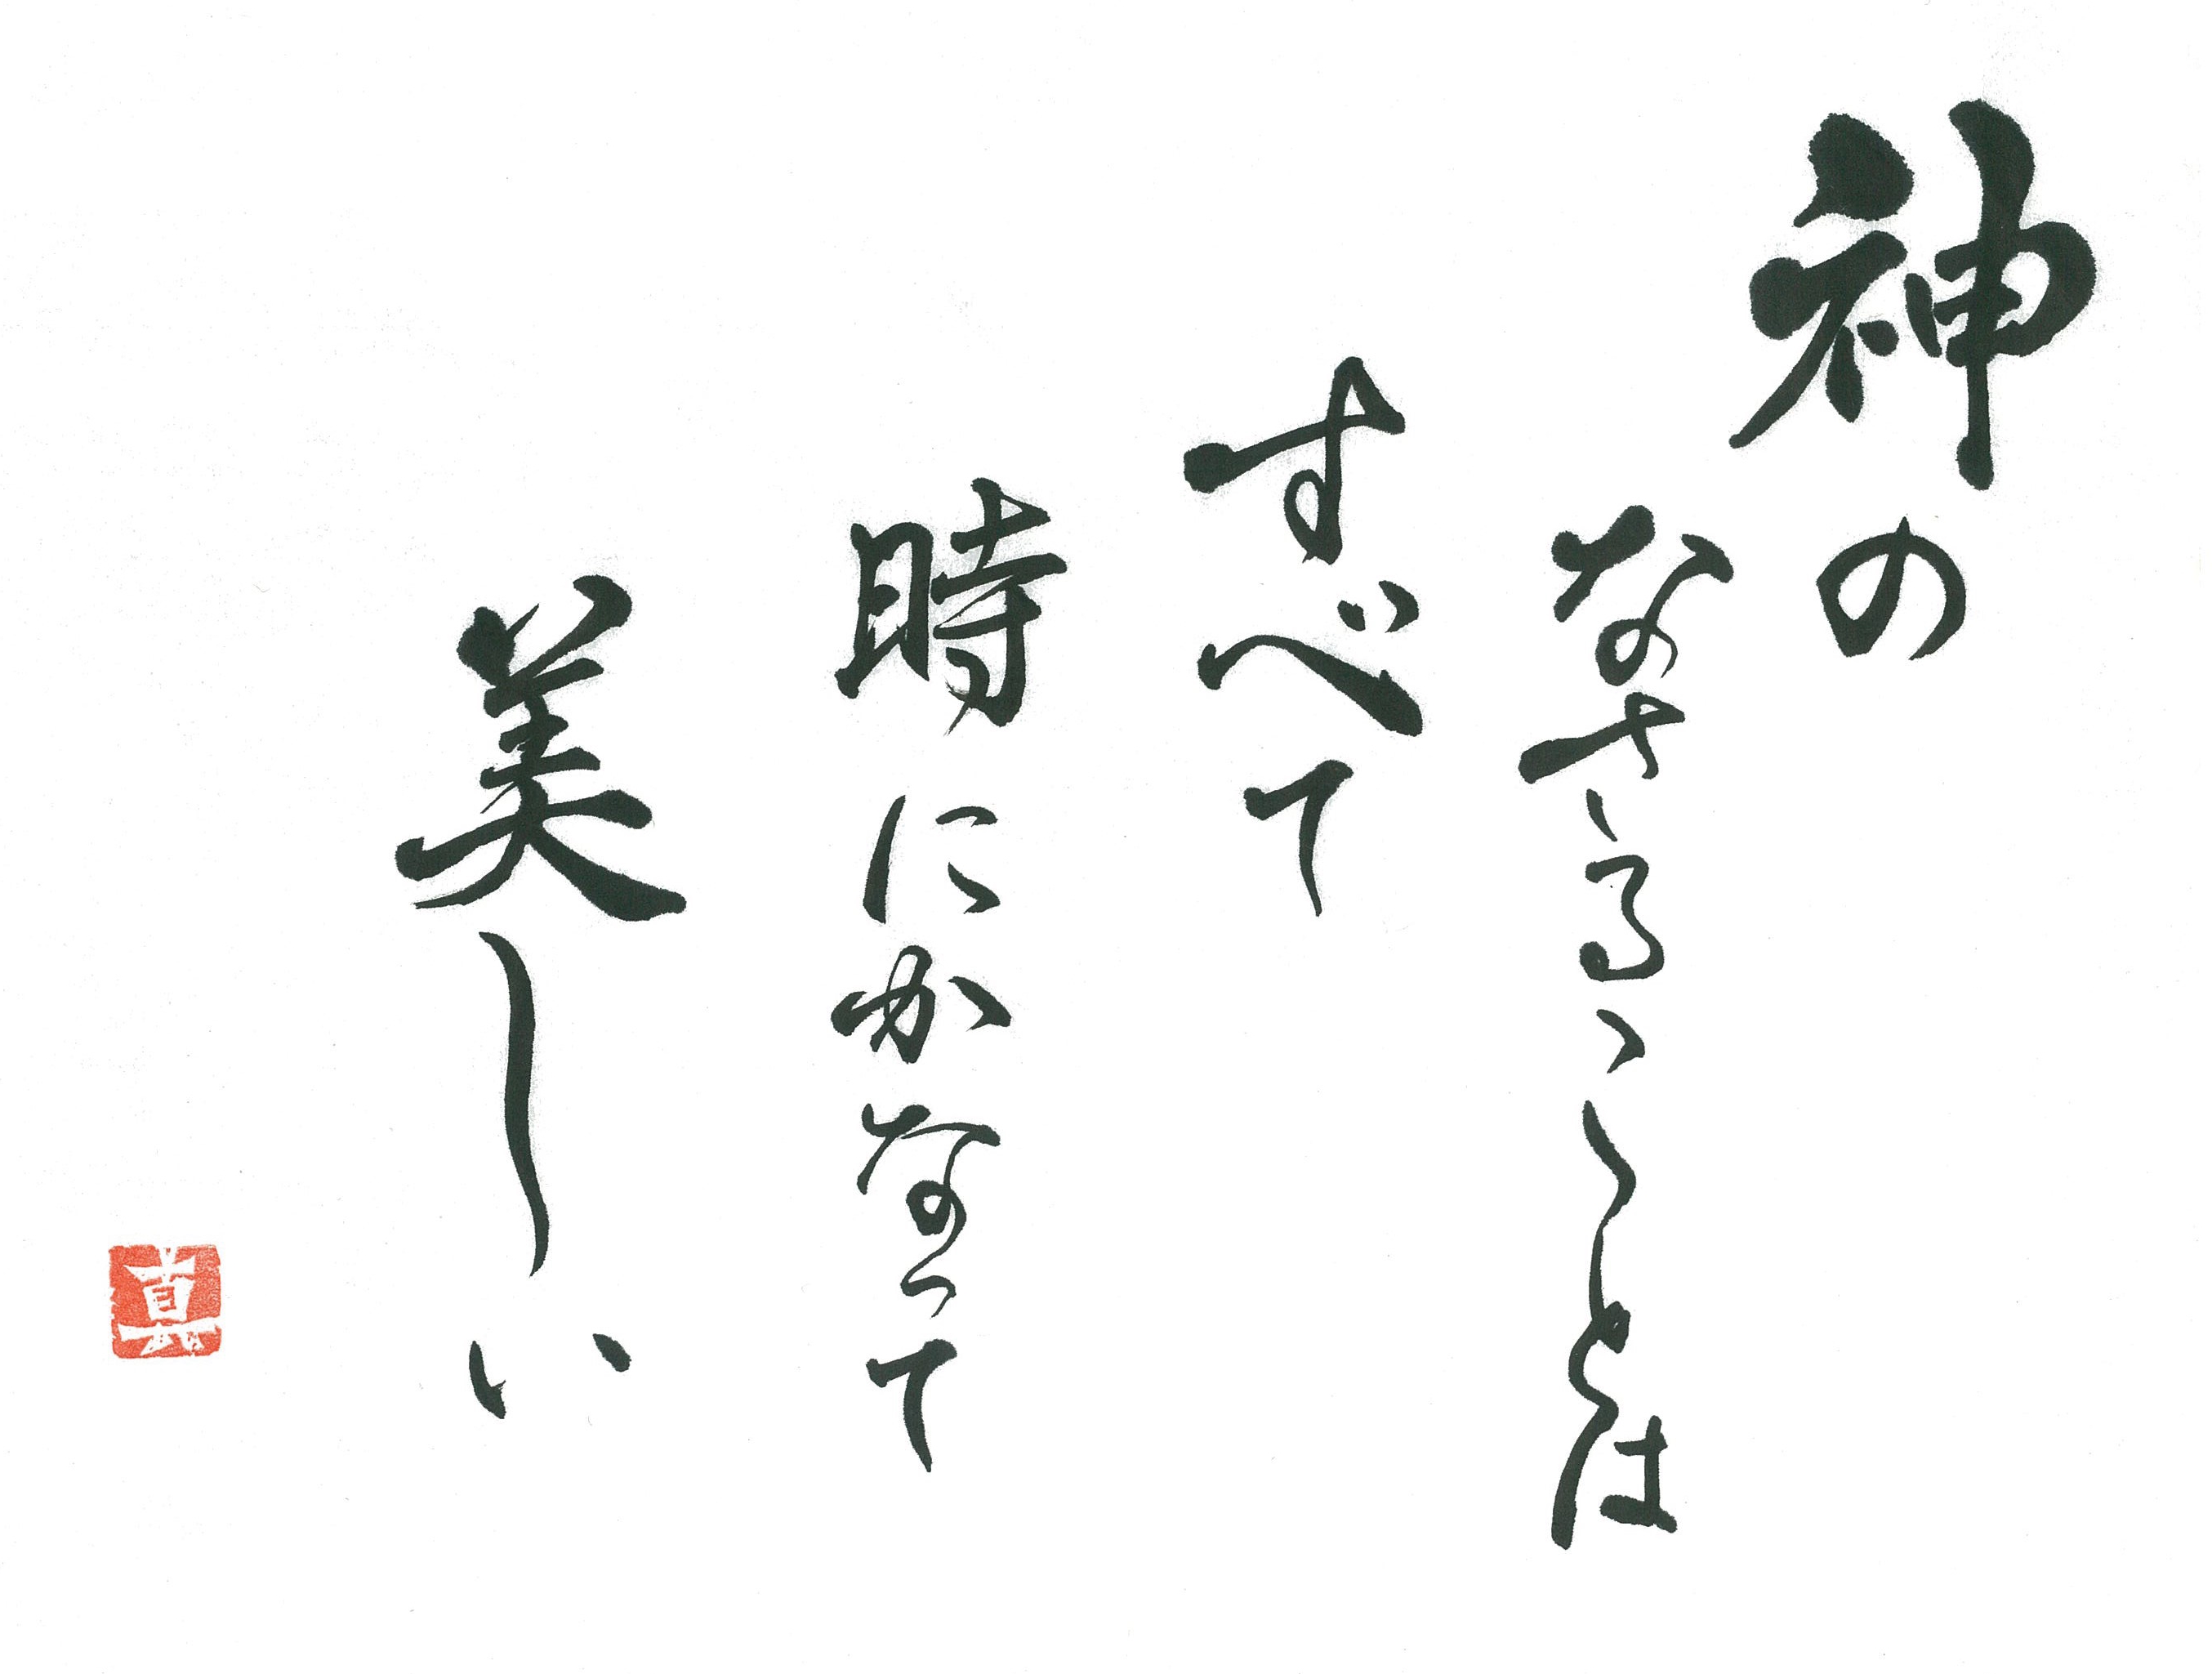 神の
なさることは
すべて
時にかなって
美しい
真